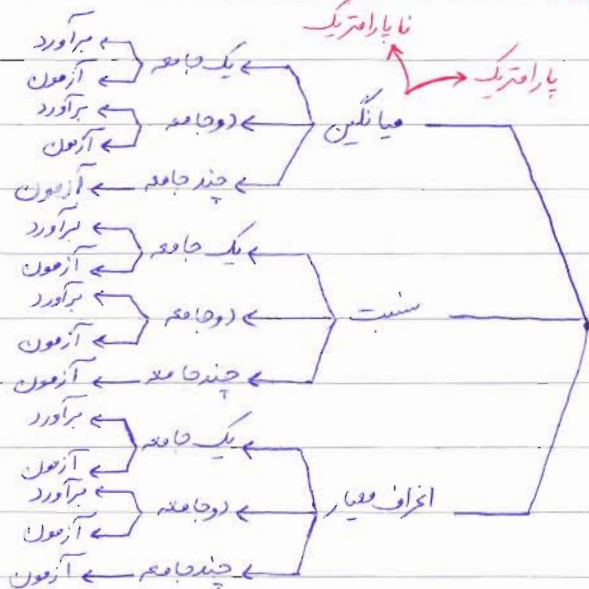 ناپارامتریک
پارامتریک
میانگین
یک جامعه
برآورد
آزمون
دو جامعه
برآورد
آزمون
چند جامعه
آزمون
نسبت
یک جامعه
برآورد
آزمون
دو جامعه
برآورد
آزمون
چند جامعه
آزمون
انحراف معیار
یک جامعه
برآورد
آزمون
دو جامعه
برآورد
آزمون
چند جامعه
آزمون